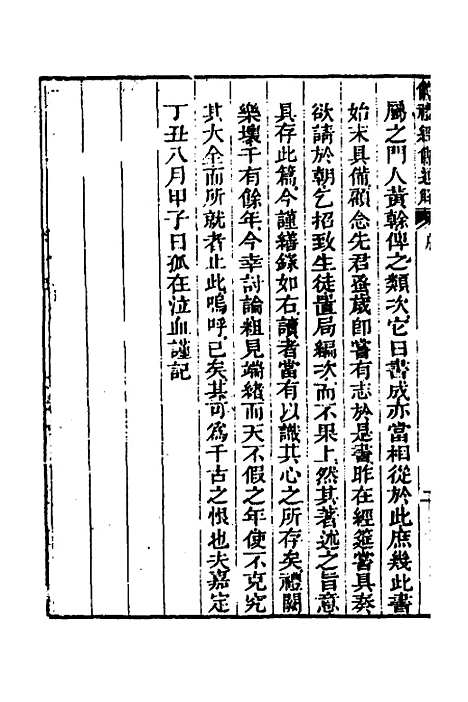 儀禮經傳通解　序
屬之門人黃榦俾之類次它日書成亦當相從於此庶幾此書
始末具備顧念先君蚤歲即嘗有志於是書昨在經筵嘗具奏
欲請於朝乞招致生徒置局編次而不果上然其著述之旨意
具存此篇今謹繕錄如右讀者當有以識其心之所存矣禮闕
樂壞千有餘年今幸討論粗見端緒而天不假之年使不克究
其大全而所就者止此嗚呼已矣其可為千古之恨也夫嘉定
丁丑八月甲子日孤在泣血謹記